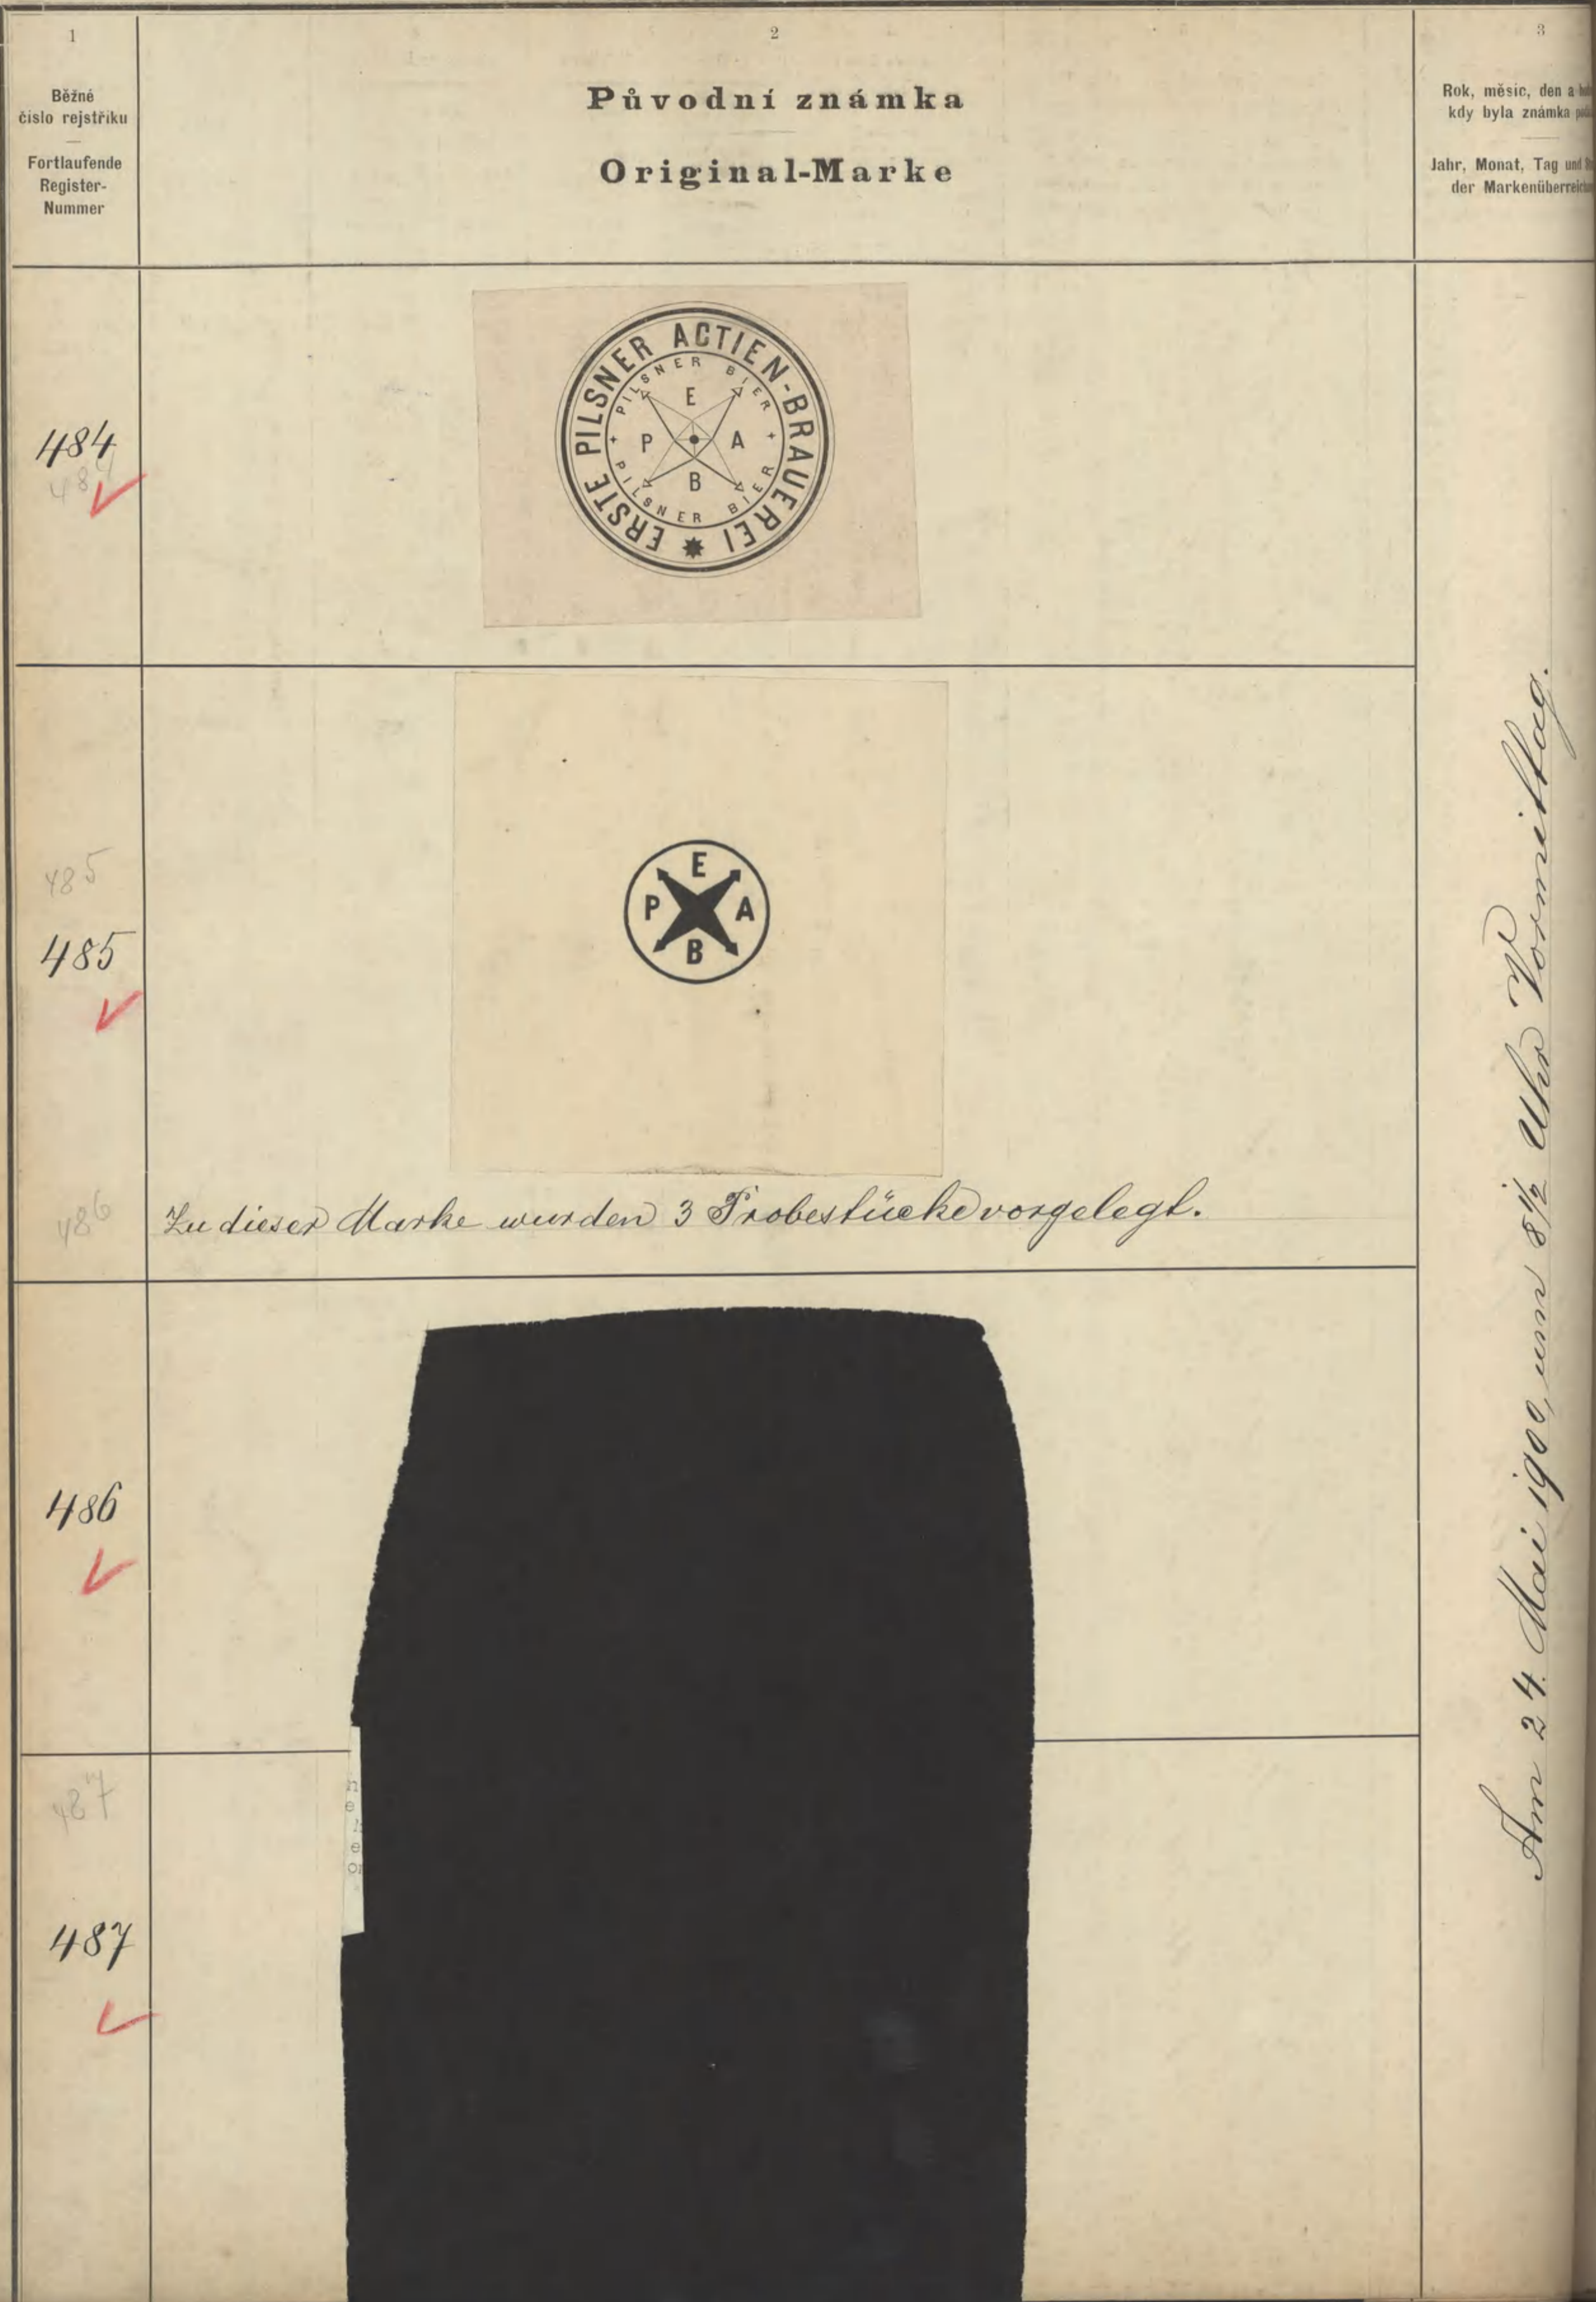 1
Běžné
číslo rejstříku
Fortlaufende
Register-
Nummer
2
Původní známka
Original-Marke
3
Rok, měsíc, den a
kdy byla známka
Jahr, Monat, Tag und
der Markenüberreich
484
484
ERSTE PILSNER ACTIEN-BRAUEREI
PILSNER BIER
PILSNER BIER
E
P A
B
485
485
E
P A
B
486
Zu dieser Marke wurden 3 Probestücke vorgelegt.
486
487
487
n
e
e
or
Am 24. Mai 1900, um 8 1/2 Uhr Vormittag.